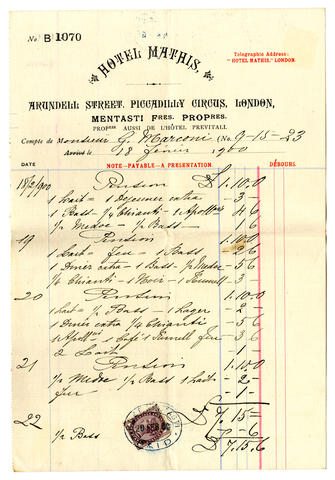 No B 1070
HOTEL MATHIS,
Telegraphic Address:
"HOTEL MATHIS," LONDON.
ARUNDELL STREET, PICCADILLY CIRCUS, LONDON,
MENTASTI FRES. PROPRES.
PROPRES AUSSI DE L'HÔTEL PREVITALI.
Compte de Monsieur G. Marconi (No. 9-15-23
Arrivé le 18 février 1900
DATE NOTE-PAYABLE-A PRESENTATION. DÉBOURS.
18/2/900 Pension £ 1.10.0
1 Lait = 1 Dejeuner extra - 3 -
1 Bass - 1/4 Chianti - 1 Apollinis 4 6
1/2 Medoc - 1/2 Bass - 1 6
19 Pension 1.10.0
1 Lait - Feu - 1 Bass - 2 6
1 Diner extra - 1 Bass - 1/2 Medoc - 5 6
1/2 Chianti - 1 Noir - 1 Fennell - 3
20 Pension 1.10.0
1 Lait - 1/2 Bass - 1 Lager - 2 -
1 Diner extra 1/4 Chianti - 5 6
1 Apollinis 1 Café 1 Fennell feu - 3 6
2 Lait - 1 -
21 Pension 1.10.0
1/2 Medoc 1/2 Bass 1 Lait - 2 -
feu - 1 -
£ 7.15 -
22 1/2 Bass - 6
£ 7.15.6
PAID